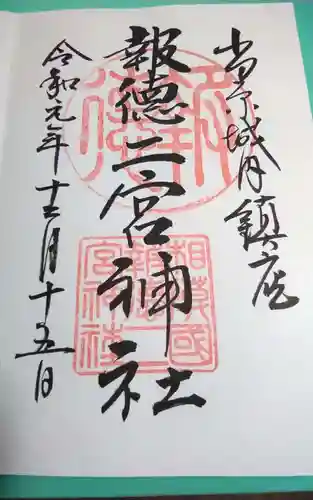 小田原城内鎮座
報徳二宮神社
令和元年十二月十五日
相模國
報徳二
宮神社